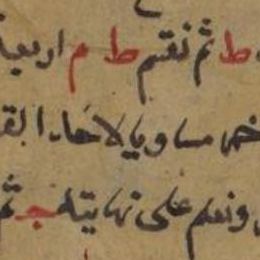 ط ثم نقسم ط م اربعة
خمس مساويا لاحاد القـ
ونعلم على نهايته جـ ثم